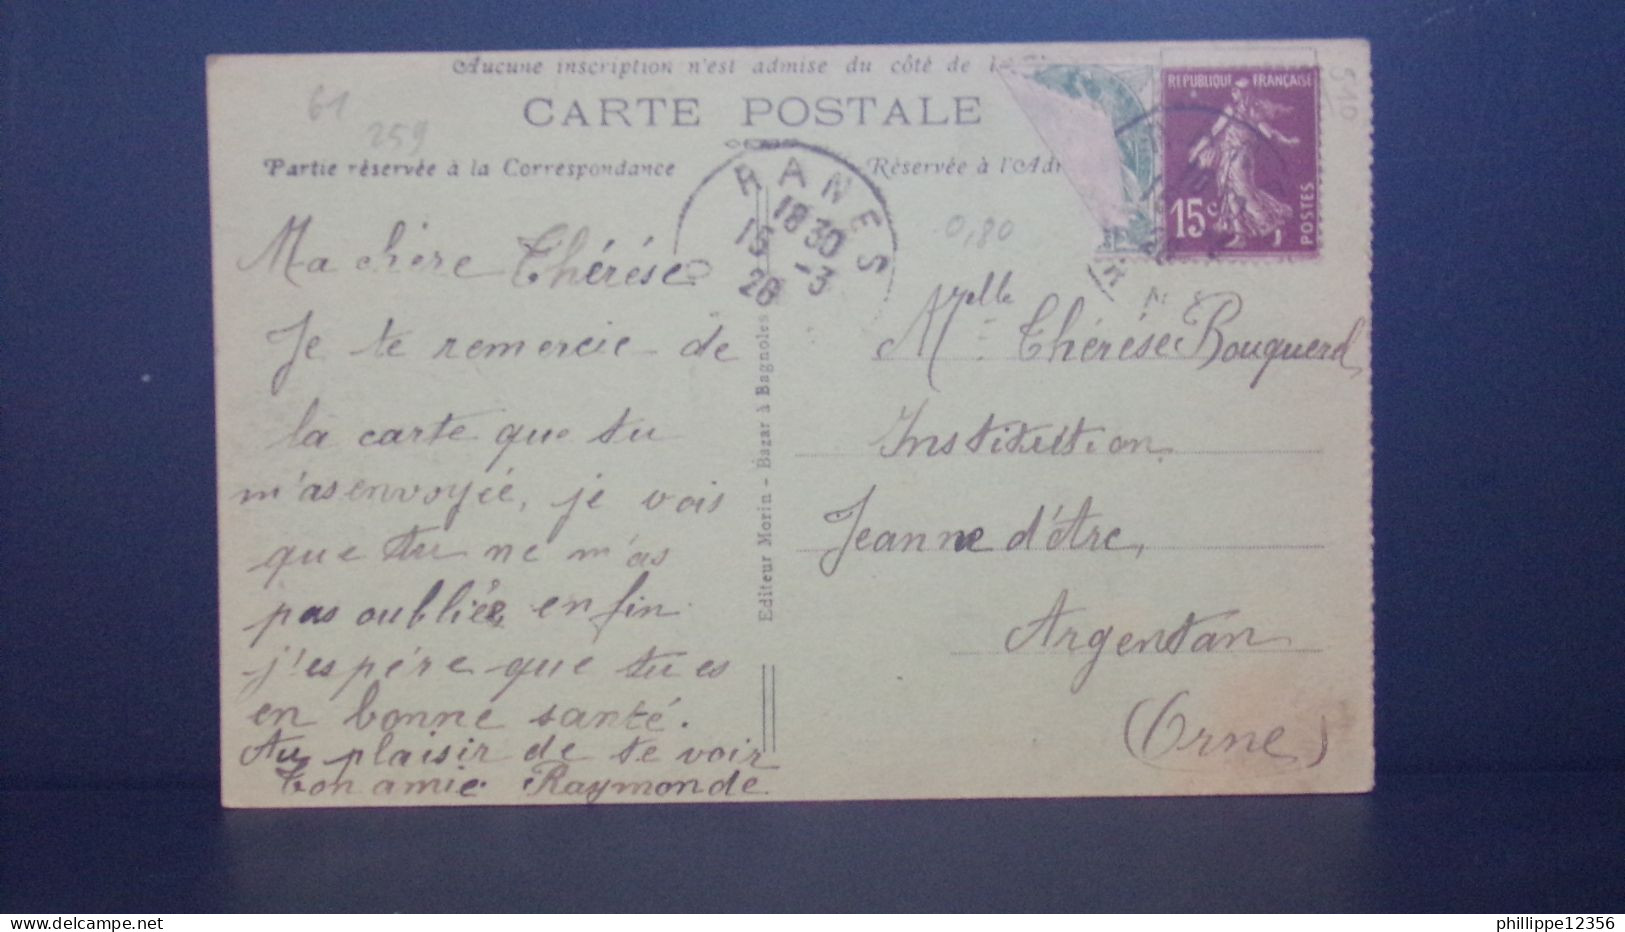 Aucune inscription n'est admise du côté de
CARTE POSTALE
61
259
Partie réservée à la Correspondance
Réservée à l'Adr
RANES
18 30
15 -3
26
0,80
510
REPUBLIQUE FRANÇAISE
15c
POSTES
Ma chère Thérése
Je te remercie de
la carte que tu
m'as envoyée, je vois
que tu ne m'as
pas oubliée, enfin
j'espére que tu es
en bonne santé.
Au plaisir de te voir
ton amie. Raymonde.
Editeur Morin - Bazar à Bagnoles
Melle Thérése Bouquerel
Institution
Jeanne d'Arc,
Argentan
(Orne)
delcampe.net
phillippe12356